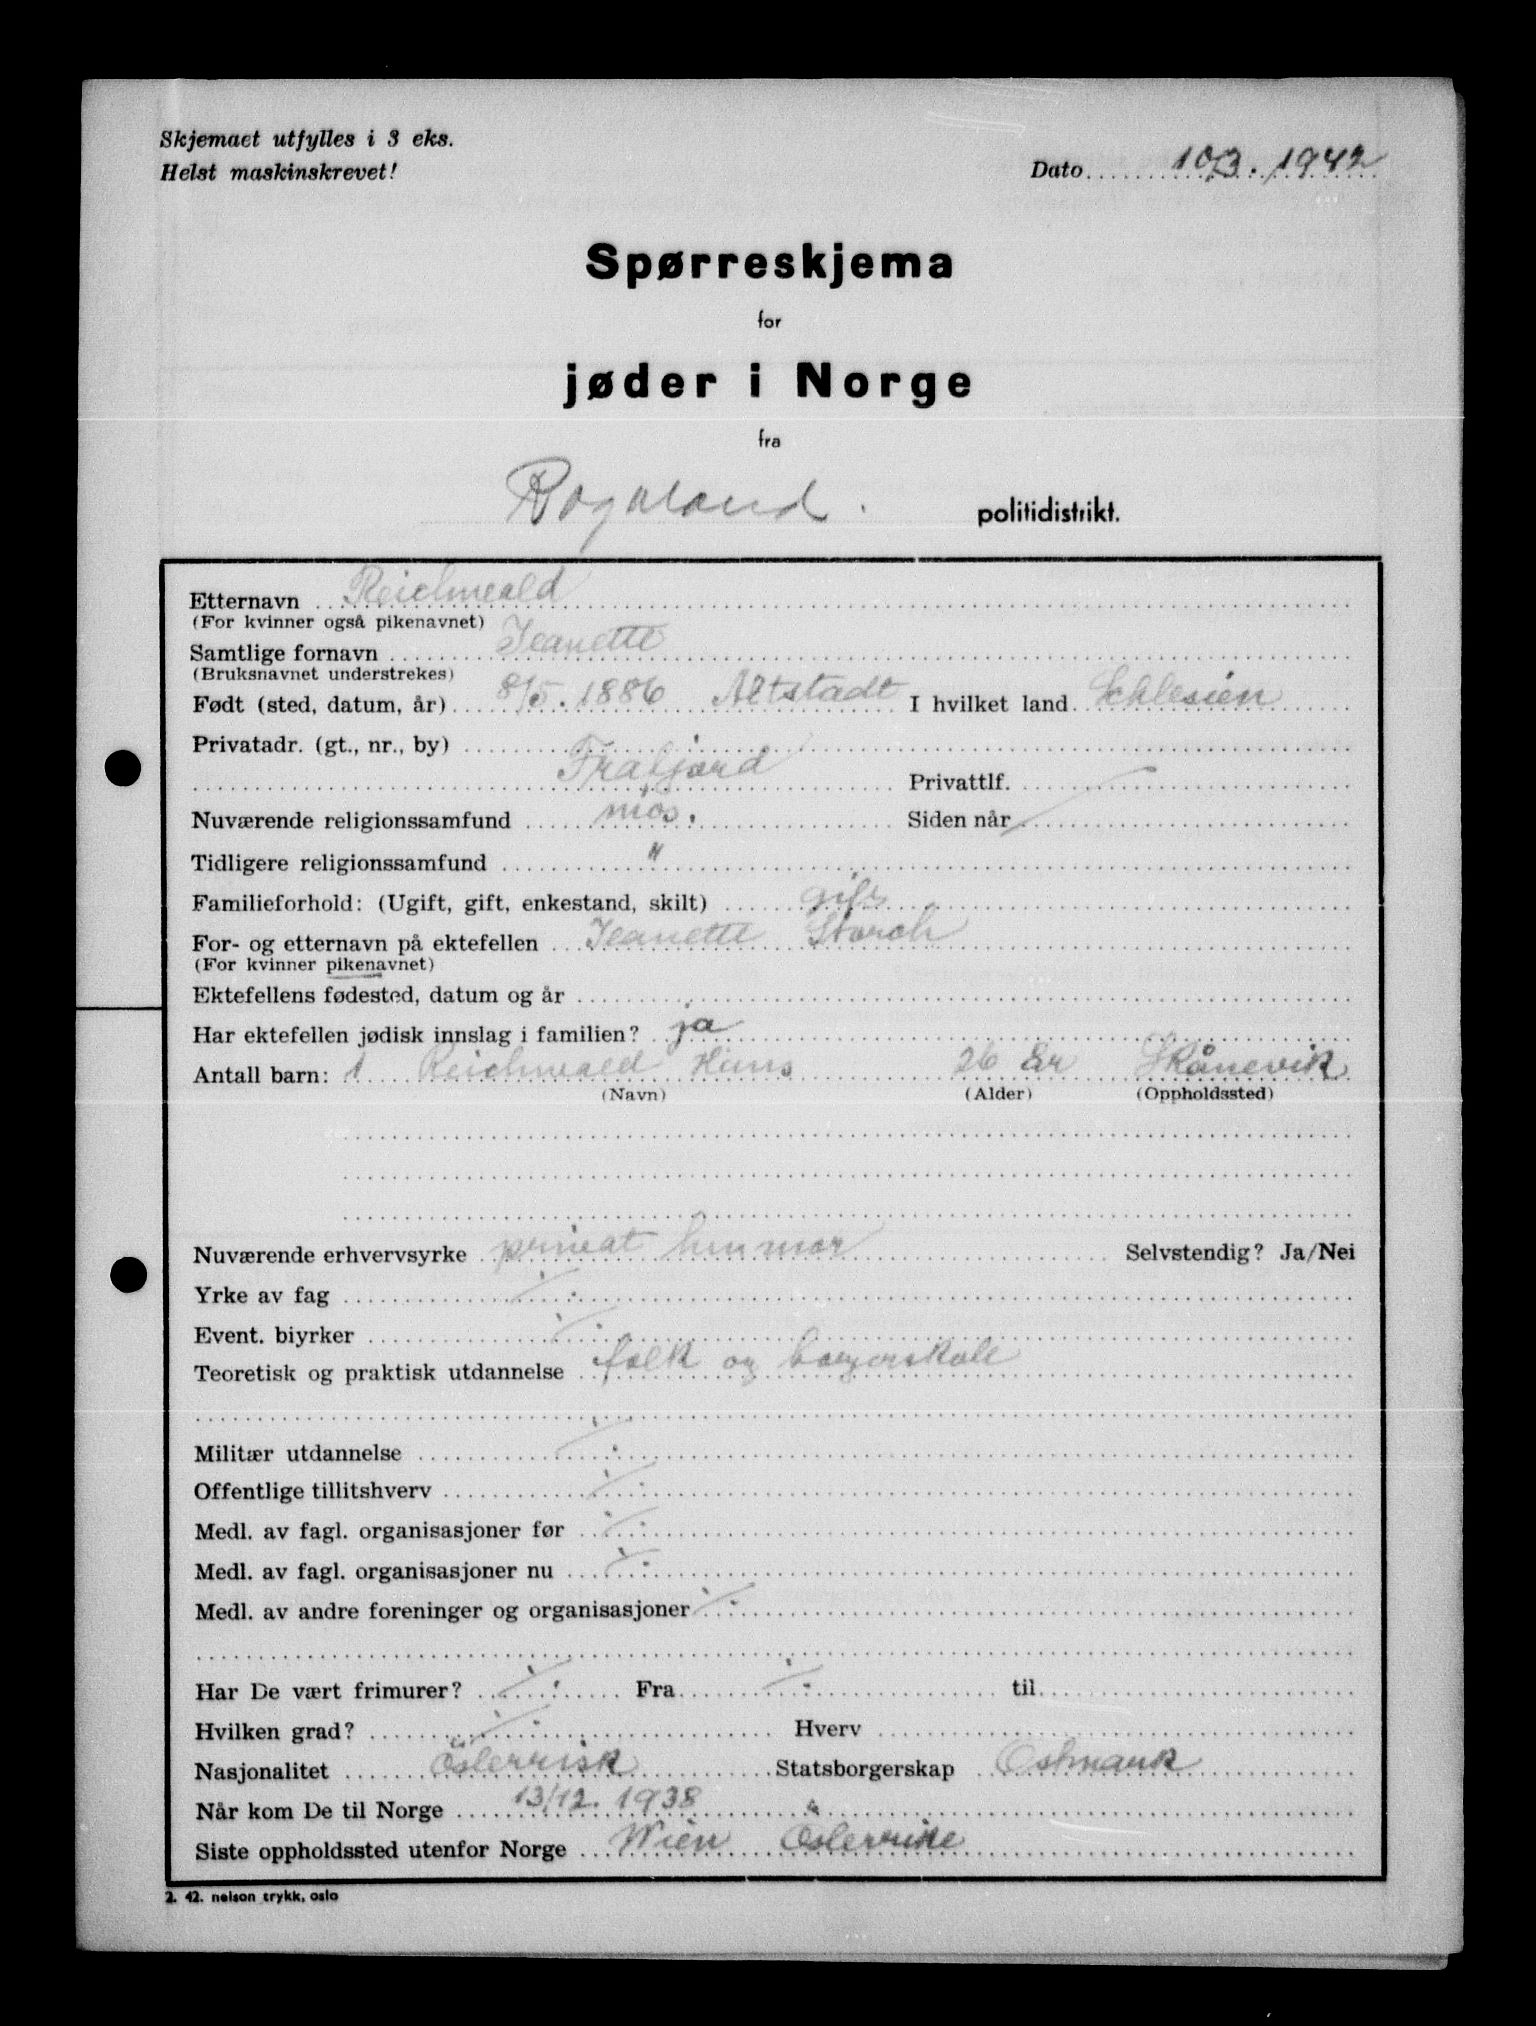 Skjemaet utfylles i 3 eks.
Helst maskinskrevet!
Dato 10/3. 1942
Spørreskjema
for
jøder i Norge
fra
Rogaland. politidistrikt.
Etternavn Reichwald
(For kvinner også pikenavnet)
Samtlige fornavn Jeanette
(Bruksnavnet understrekes)
Født (sted, datum, år) 8/5. 1886 Altstadt I hvilket land Schlesien
Privatadr. (gt., nr., by)
Frafjord Privattlf.
Nuværende religionssamfund mos. Siden når
Tidligere religionssamfund "
Familieforhold: (Ugift, gift, enkestand, skilt) gift
For- og etternavn på ektefellen Jeanette Storch
(For kvinner pikenavnet)
Ektefellens fødested, datum og år
Har ektefellen jødisk innslag i familien? ja
Antall barn: 1 Reichwald Hans 26 år Skånevik
(Navn) (Alder) (Oppholdssted)
Nuværende erhvervsyrke privat husmor Selvstendig? Ja/Nei
Yrke av fag ./.
Event. biyrker ./.
Teoretisk og praktisk utdannelse folk og borgerskole
Militær utdannelse ./.
Offentlige tillitshverv ./.
Medl. av fagl. organisasjoner før ./.
Medl. av fagl. organisasjoner nu ./.
Medl. av andre foreninger og organisasjoner ./.
Har De vært frimurer? ./. Fra ./. til
Hvilken grad? ./. Hverv
Nasjonalitet Österrisk Statsborgerskap Ostmark
Når kom De til Norge 13/12. 1938
Siste oppholdssted utenfor Norge Wien Österrike
2. 42. nelson trykk, oslo